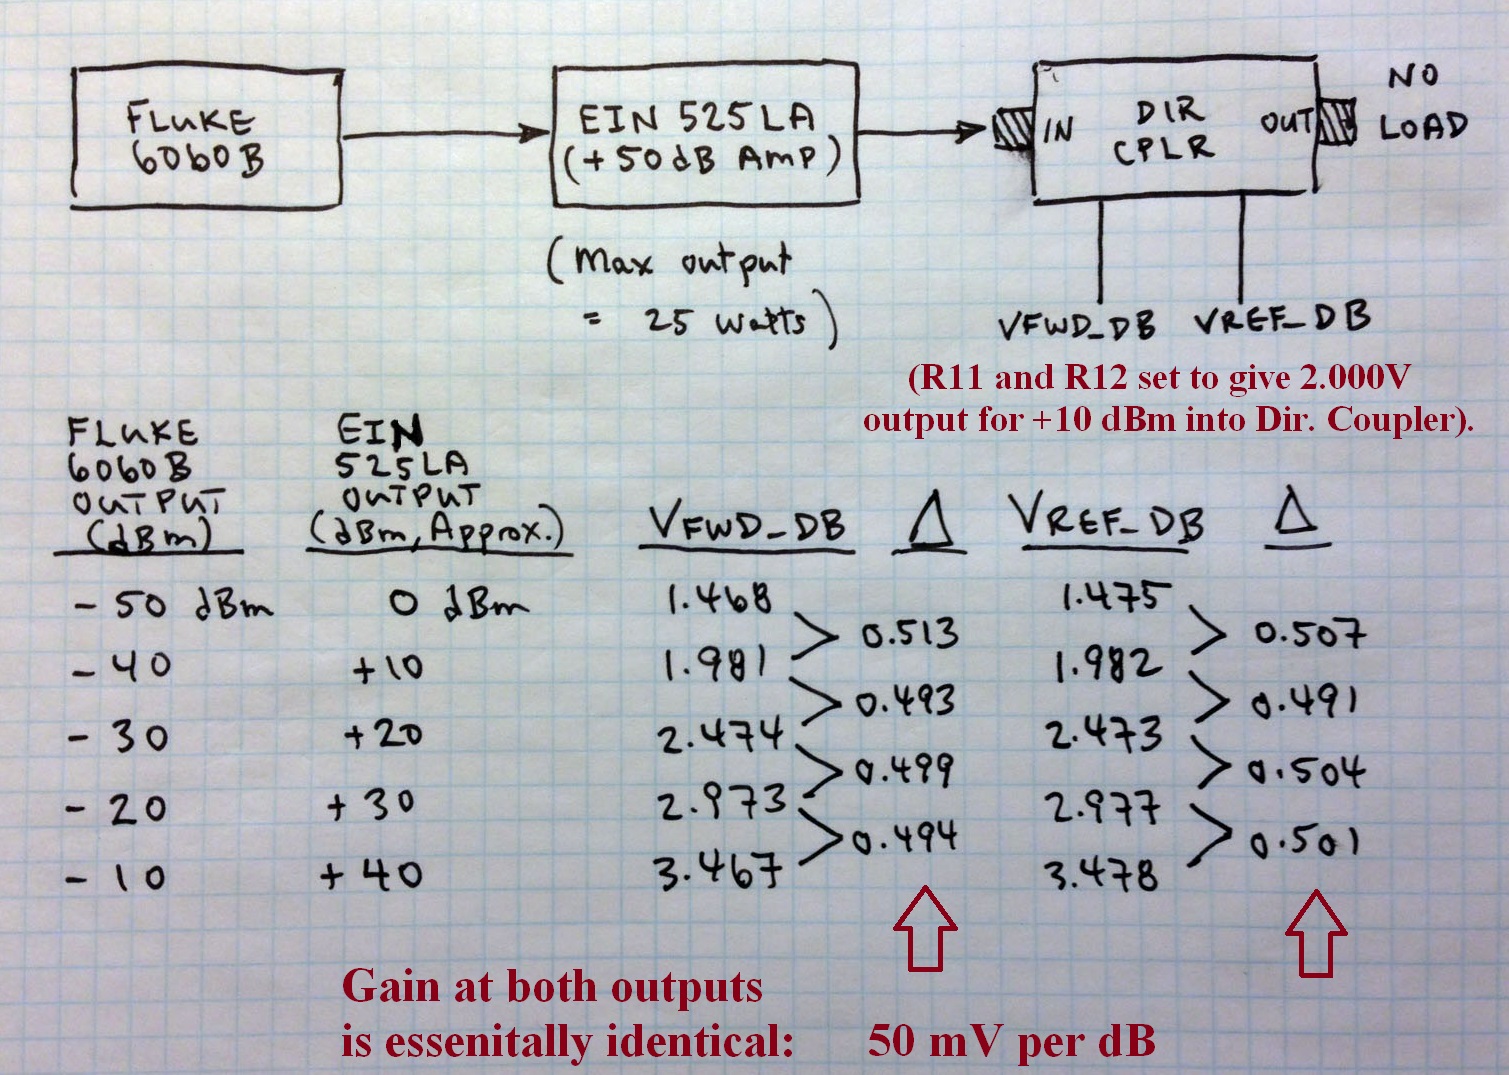 FLUKE
6060B
EIN 525LA
(+50dB Amp)
(Max output
= 25 watts)
IN
DIR
CPLR
OUT
NO
LOAD
VFWD_DB
VREF_DB
(R11 and R12 set to give 2.000V
output for +10 dBm into Dir. Coupler).
FLUKE
6060B
OUTPUT
(dBm)
EIN
525LA
OUTPUT
(dBm, Approx.)
VFWD_DB
Δ
VREF_DB
Δ
-50 dBm 0 dBm 1.468 1.475
0.513 0.507
-40 +10 1.981 1.982
0.493 0.491
-30 +20 2.474 2.473
0.499 0.504
-20 +30 2.973 2.977
0.494 0.501
-10 +40 3.467 3.478
Gain at both outputs
is essenitally identical: 50 mV per dB